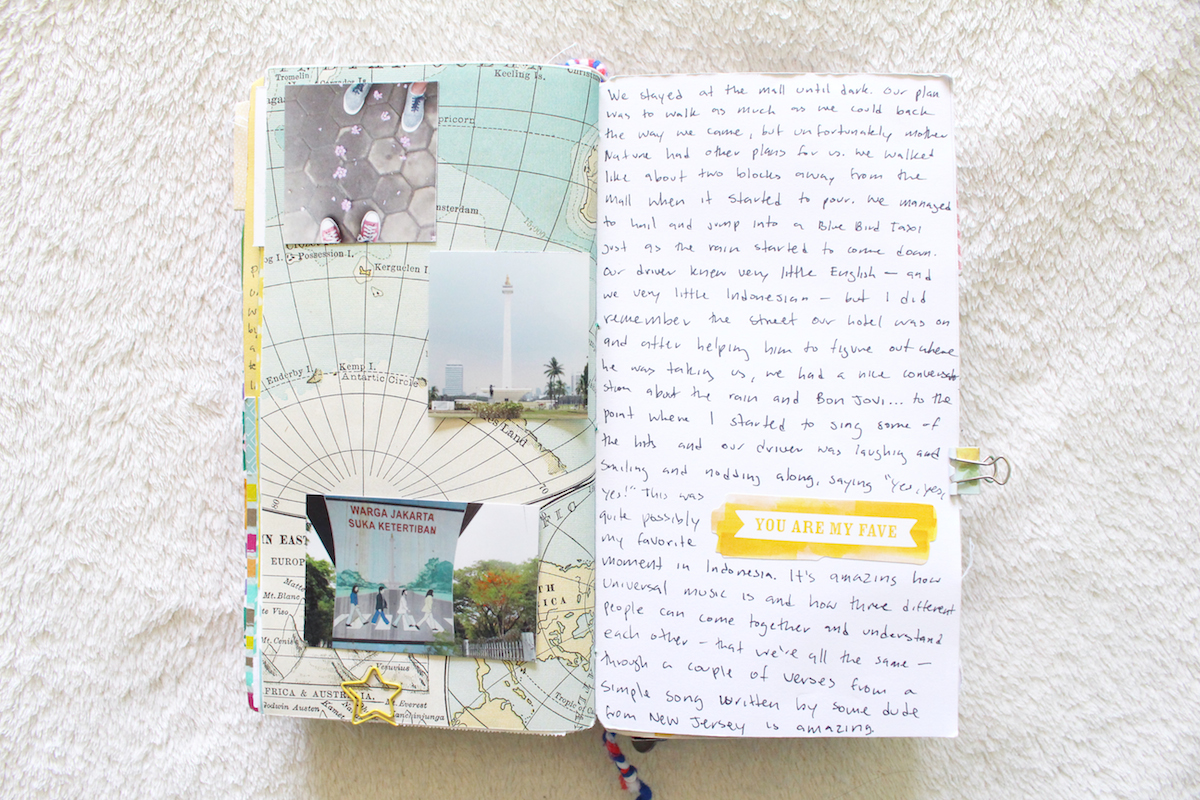 Tremelin
Keeling Is.
pricorn
msterdam
Possession I.
Kerguelen I
Enderby I.
Kemp I.
Antartic Circle
es Land
70
70
WARGA JAKARTA
SUKA KETERTIBAN
IN EAST
EUROP
Mt. Blanc
te Viso
Mt. Cenis
Vesuvius
FRICA & AUSTRALIA.
odwin Austen
Kamet
Mt. Everest
anchinjunga
Tropic of
We stayed at the mall until dark. Our plan
was to walk as much as we could back
the way we came, but unfortunately mother
Nature had other plans for us. We walked
like about two blocks away from the
mall when it started to pour. We managed
to hail and jump into a Blue Bird Taxi
just as the rain started to come down.
Our driver knew very little English – and
we very little Indonesian – but I did
remember the street our hotel was on
and after helping him to figure out where
he was taking us, we had a nice conversa
tion about the rain and Bon Jovi... to the
point where I started to sing some of
the hits and our driver was laughing and
smiling and nodding along, saying "Yes, yes,
yes!" This was
quite possibly
my favorite
YOU ARE MY FAVE
moment in Indonesia. It's amazing how
universal music is and how three different
people can come together and understand
each other – that we're all the same –
through a couple of verses from a
simple song written by some dude
from New Jersey is amazing.